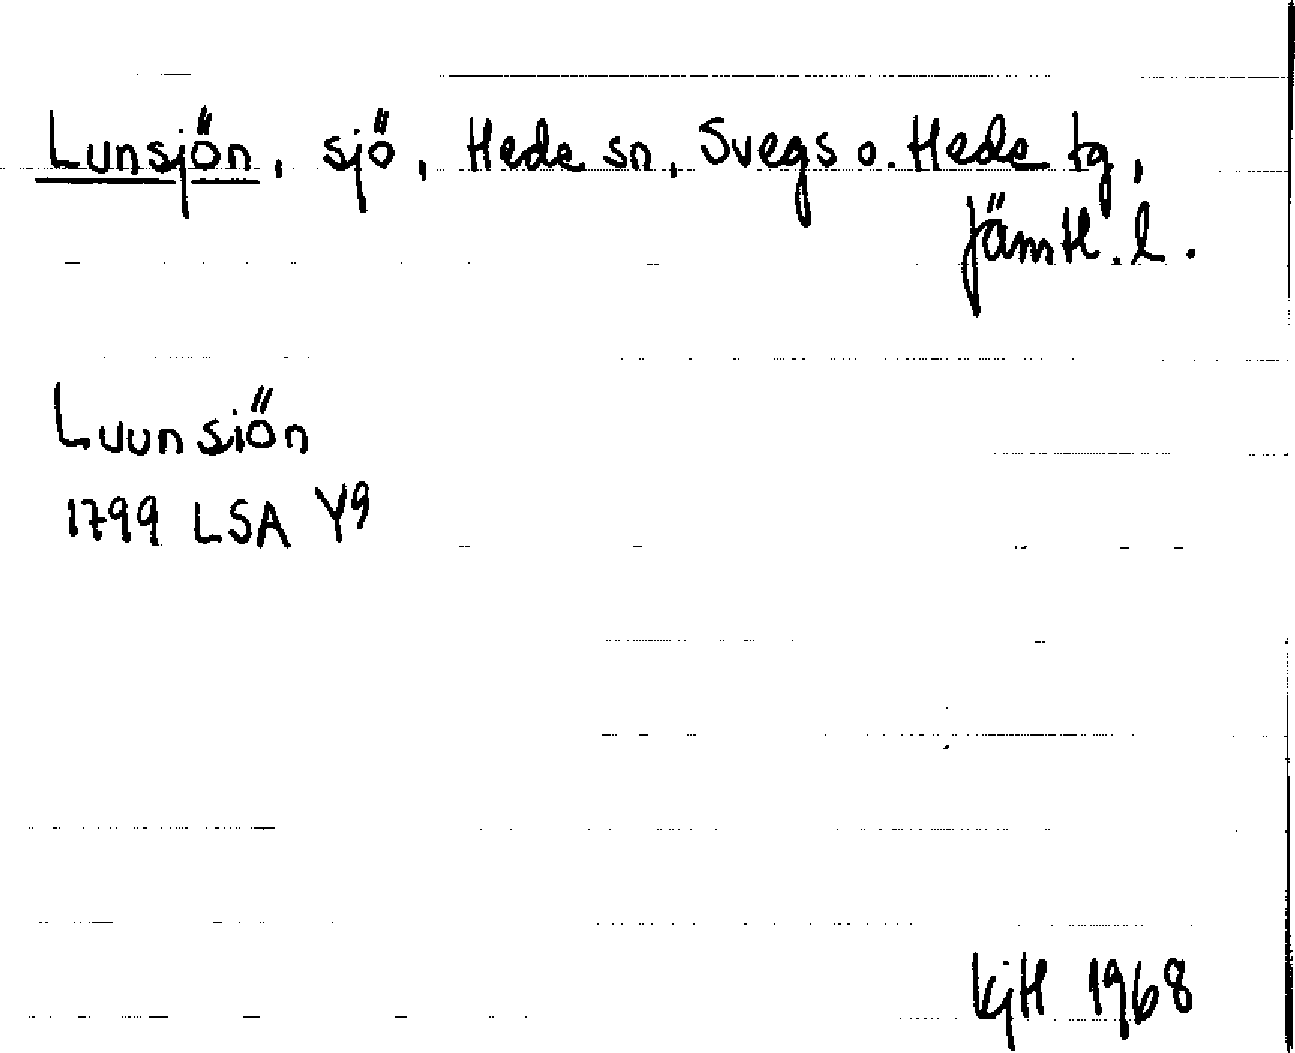 Lunsjön, sjö, Hede sn, Svegs o. Hede tg,
Jämtl. l.
Luunsiön
1799 LSA Y9
KjH 1968